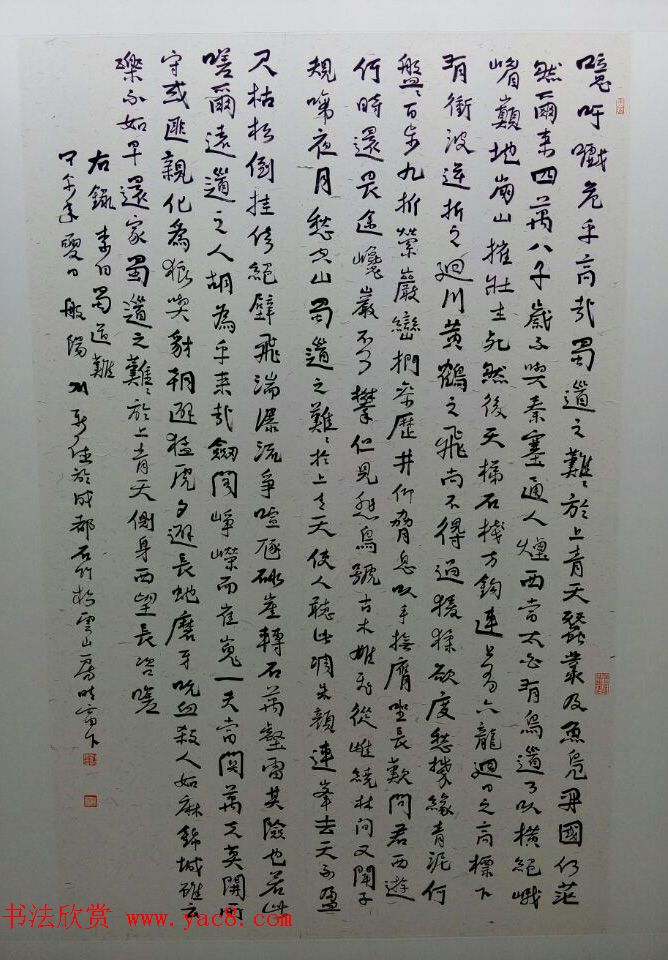 噫吁戲危乎高哉蜀道之難〻於上青天蠶叢及魚鳧開國何茫
然爾来四萬八千歲不與秦塞通人煙西當太白有鳥道可以橫絕峨
嵋巔地崩山摧壯士死然後天梯石棧方鉤連上有六龍廻日之高標下
有衝波逆折之廻川黃鶴之飛尚不得過猨猱欲度愁攀緣青泥何
盤〻百步九折縈巖巒捫參歷井仰脅息以手撫膺坐長歎問君西遊
何時還畏途巉巖不可攀但見悲鳥號古木雄飛從雌繞林間又聞子
規啼夜月愁空山蜀道之難〻於上青天使人聽此凋朱顏連峯去天不盈
尺枯松倒挂倚絕壁飛湍瀑流爭喧豗砯崖轉石萬壑雷其險也若此
嗟爾遠道之人胡為乎来哉劍閣崢嶸而崔嵬一夫當関萬夫莫開所
守或匪親化為狼與豺朝避猛虎夕避長蛇磨牙吮血殺人如麻錦城雖云
樂不如早還家蜀道之難〻於上青天側身西望長咨嗟
右錄李白蜀道難
甲午年夏日般陽於成都石竹山房
书法欣赏 www.yac8.com